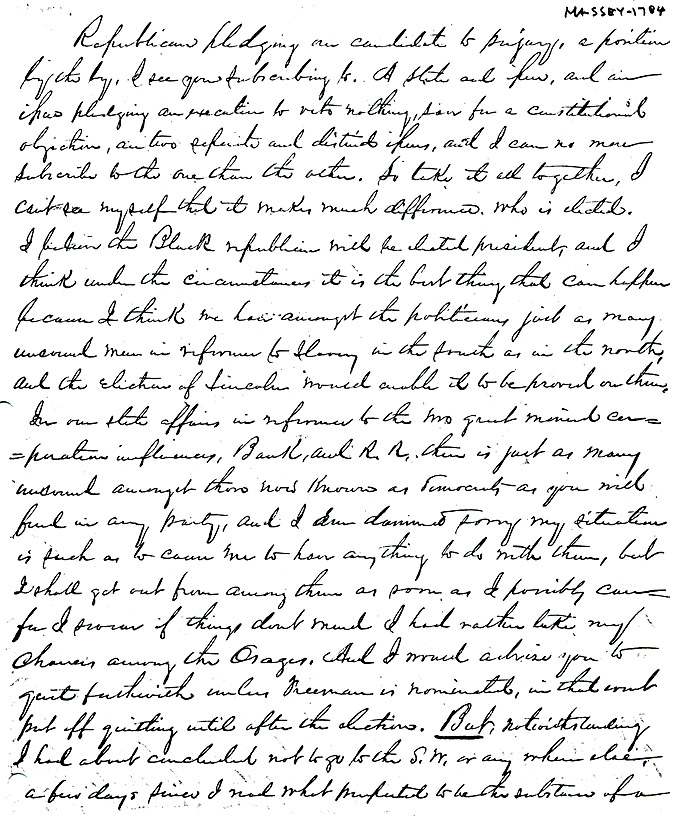 MASSEY-1784
Republican pledging our candidate to perjury, a position
by, the by, I see you subscribing to. A state and, and an
pledging an executive to veto nothing, save for a constitutional
objection, are two separate and distinct, and I can no more
subscribe to the one than the other. So take it all together, I
cant see myself that it makes much difference. who is elected.
I believe the Black republican will be elected president, and I
think under the circumstances it is the best thing that can happen
because I think we have amongst the politicians just as many
unsound men in reference to Slavery in the South as in the north,
and the election of Lincoln would enable it to be proved on them.
In our state affairs in reference to the two great monied cor=
=poration influences, Bank, and R. R. there is just as many
unsound amongst those now known as Democrats as you will
find in any party, and I am damned sorry my situation
is such as to cause me to have anything to do with them, but
I shall get out from among them as soon as I possibly can=
for I swear if things dont mend I had rather take my
chances among the Osages. And I would advise you to
quit forthwith unless Freeman is nominated, in that event
put off quitting until after the election. But, notwithstanding
I had about concluded not to go to the S. W. or any where else,
a few days since I read what purported to be the substance of a